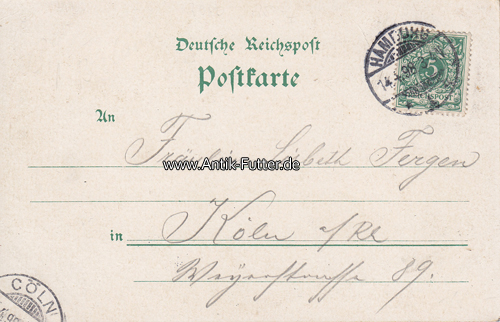 Deutsche Reichspost
Postkarte
HAMBURG
14.
5
REICHSPOST
An
Fräulein Lisbeth Fergen
www.Antik-Futter.de
in Köln a/Rh
Weyerstrasse 89.
CÖLN